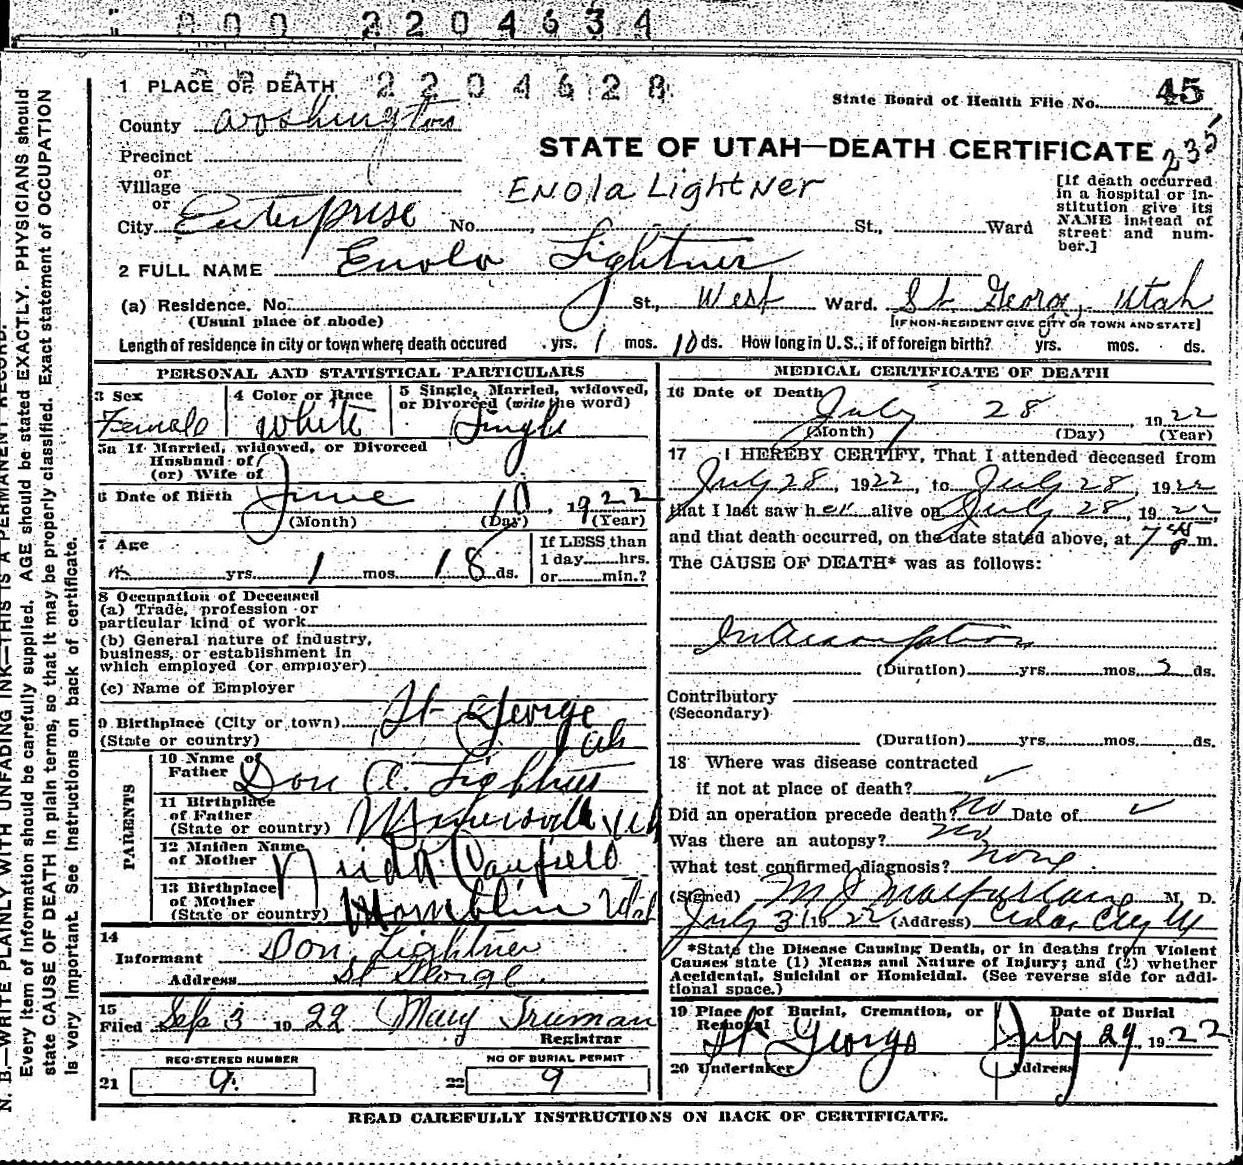 000 2204634
1 PLACE OF DEATH 2204628
State Board of Health File No. 45
County Washington
235
STATE OF UTAH—DEATH CERTIFICATE
Precinct
or
Village
or
City Enterprise No. St., Ward
Enola Lightner
[If death occurred
in a hospital or in-
stitution give its
NAME instead of
street and num-
ber.]
2 FULL NAME Enola Lightner
(a) Residence. No. St., West Ward. St. George, Utah
(Usual place of abode) [IF NON-RESIDENT GIVE CITY OR TOWN AND STATE]
Length of residence in city or town where death occured yrs. 1 mos. 10 ds. How long in U. S., if of foreign birth? yrs. mos. ds.
PERSONAL AND STATISTICAL PARTICULARS
3 Sex Female
4 Color or Race White
5 Single, Married, widowed,
or Divorced (write the word)
Single
5a If Married, widowed, or Divorced
Husband of
(or) Wife of
6 Date of Birth June 10, 1922
(Month) (Day) (Year)
7 Age
yrs. 1 mos. 18 ds.
If LESS than
1 day hrs.
or min.?
8 Occupation of Deceased
(a) Trade, profession or
particular kind of work
(b) General nature of industry,
business, or establishment in
which employed (or employer)
(c) Name of Employer
9 Birthplace (City or town) St George
(State or country) Utah
PARENTS
10 Name of
Father Don C. Lightner
11 Birthplace
of Father
(State or country)
12 Maiden Name
of Mother Canfield
13 Birthplace
of Mother
(State or country) Hamblin Utah
14
Informant Don Lightner
Address St George
15
Filed Sep 3 1922 Mary Truman
Registrar
REGISTERED NUMBER
21 9
NO OF BURIAL PERMIT
22 9
MEDICAL CERTIFICATE OF DEATH
16 Date of Death
July 28, 1922
(Month) (Day) (Year)
17 I HEREBY CERTIFY, That I attended deceased from
July 28, 1922, to July 28, 1922
that I last saw her alive on July 28, 1922,
and that death occurred, on the date stated above, at 7 m.
The CAUSE OF DEATH* was as follows:
(Duration) yrs. mos. ds.
Contributory
(Secondary)
(Duration) yrs. mos. ds.
18 Where was disease contracted
if not at place of death?
Did an operation precede death? no Date of
Was there an autopsy? no
What test confirmed diagnosis? none
(Signed) M J Macfarlane M. D.
July 31 1922 (Address) Cedar City Ut
*State the Disease Causing Death, or in deaths from Violent
Causes state (1) Means and Nature of Injury; and (2) whether
Accidental, Suicidal or Homicidal. (See reverse side for addi-
tional space.)
19 Place of Burial, Cremation, or
Removal St George
Date of Burial
July 29, 1922
20 Undertaker
Address
READ CAREFULLY INSTRUCTIONS ON BACK OF CERTIFICATE.
N. B.—WRITE PLAINLY WITH UNFADING INK—THIS IS A PERMANENT RECORD.
Every item of information should be carefully supplied. AGE should be stated EXACTLY. PHYSICIANS should
state CAUSE OF DEATH in plain terms, so that it may be properly classified. Exact statement of OCCUPATION
is very important. See instructions on back of certificate.